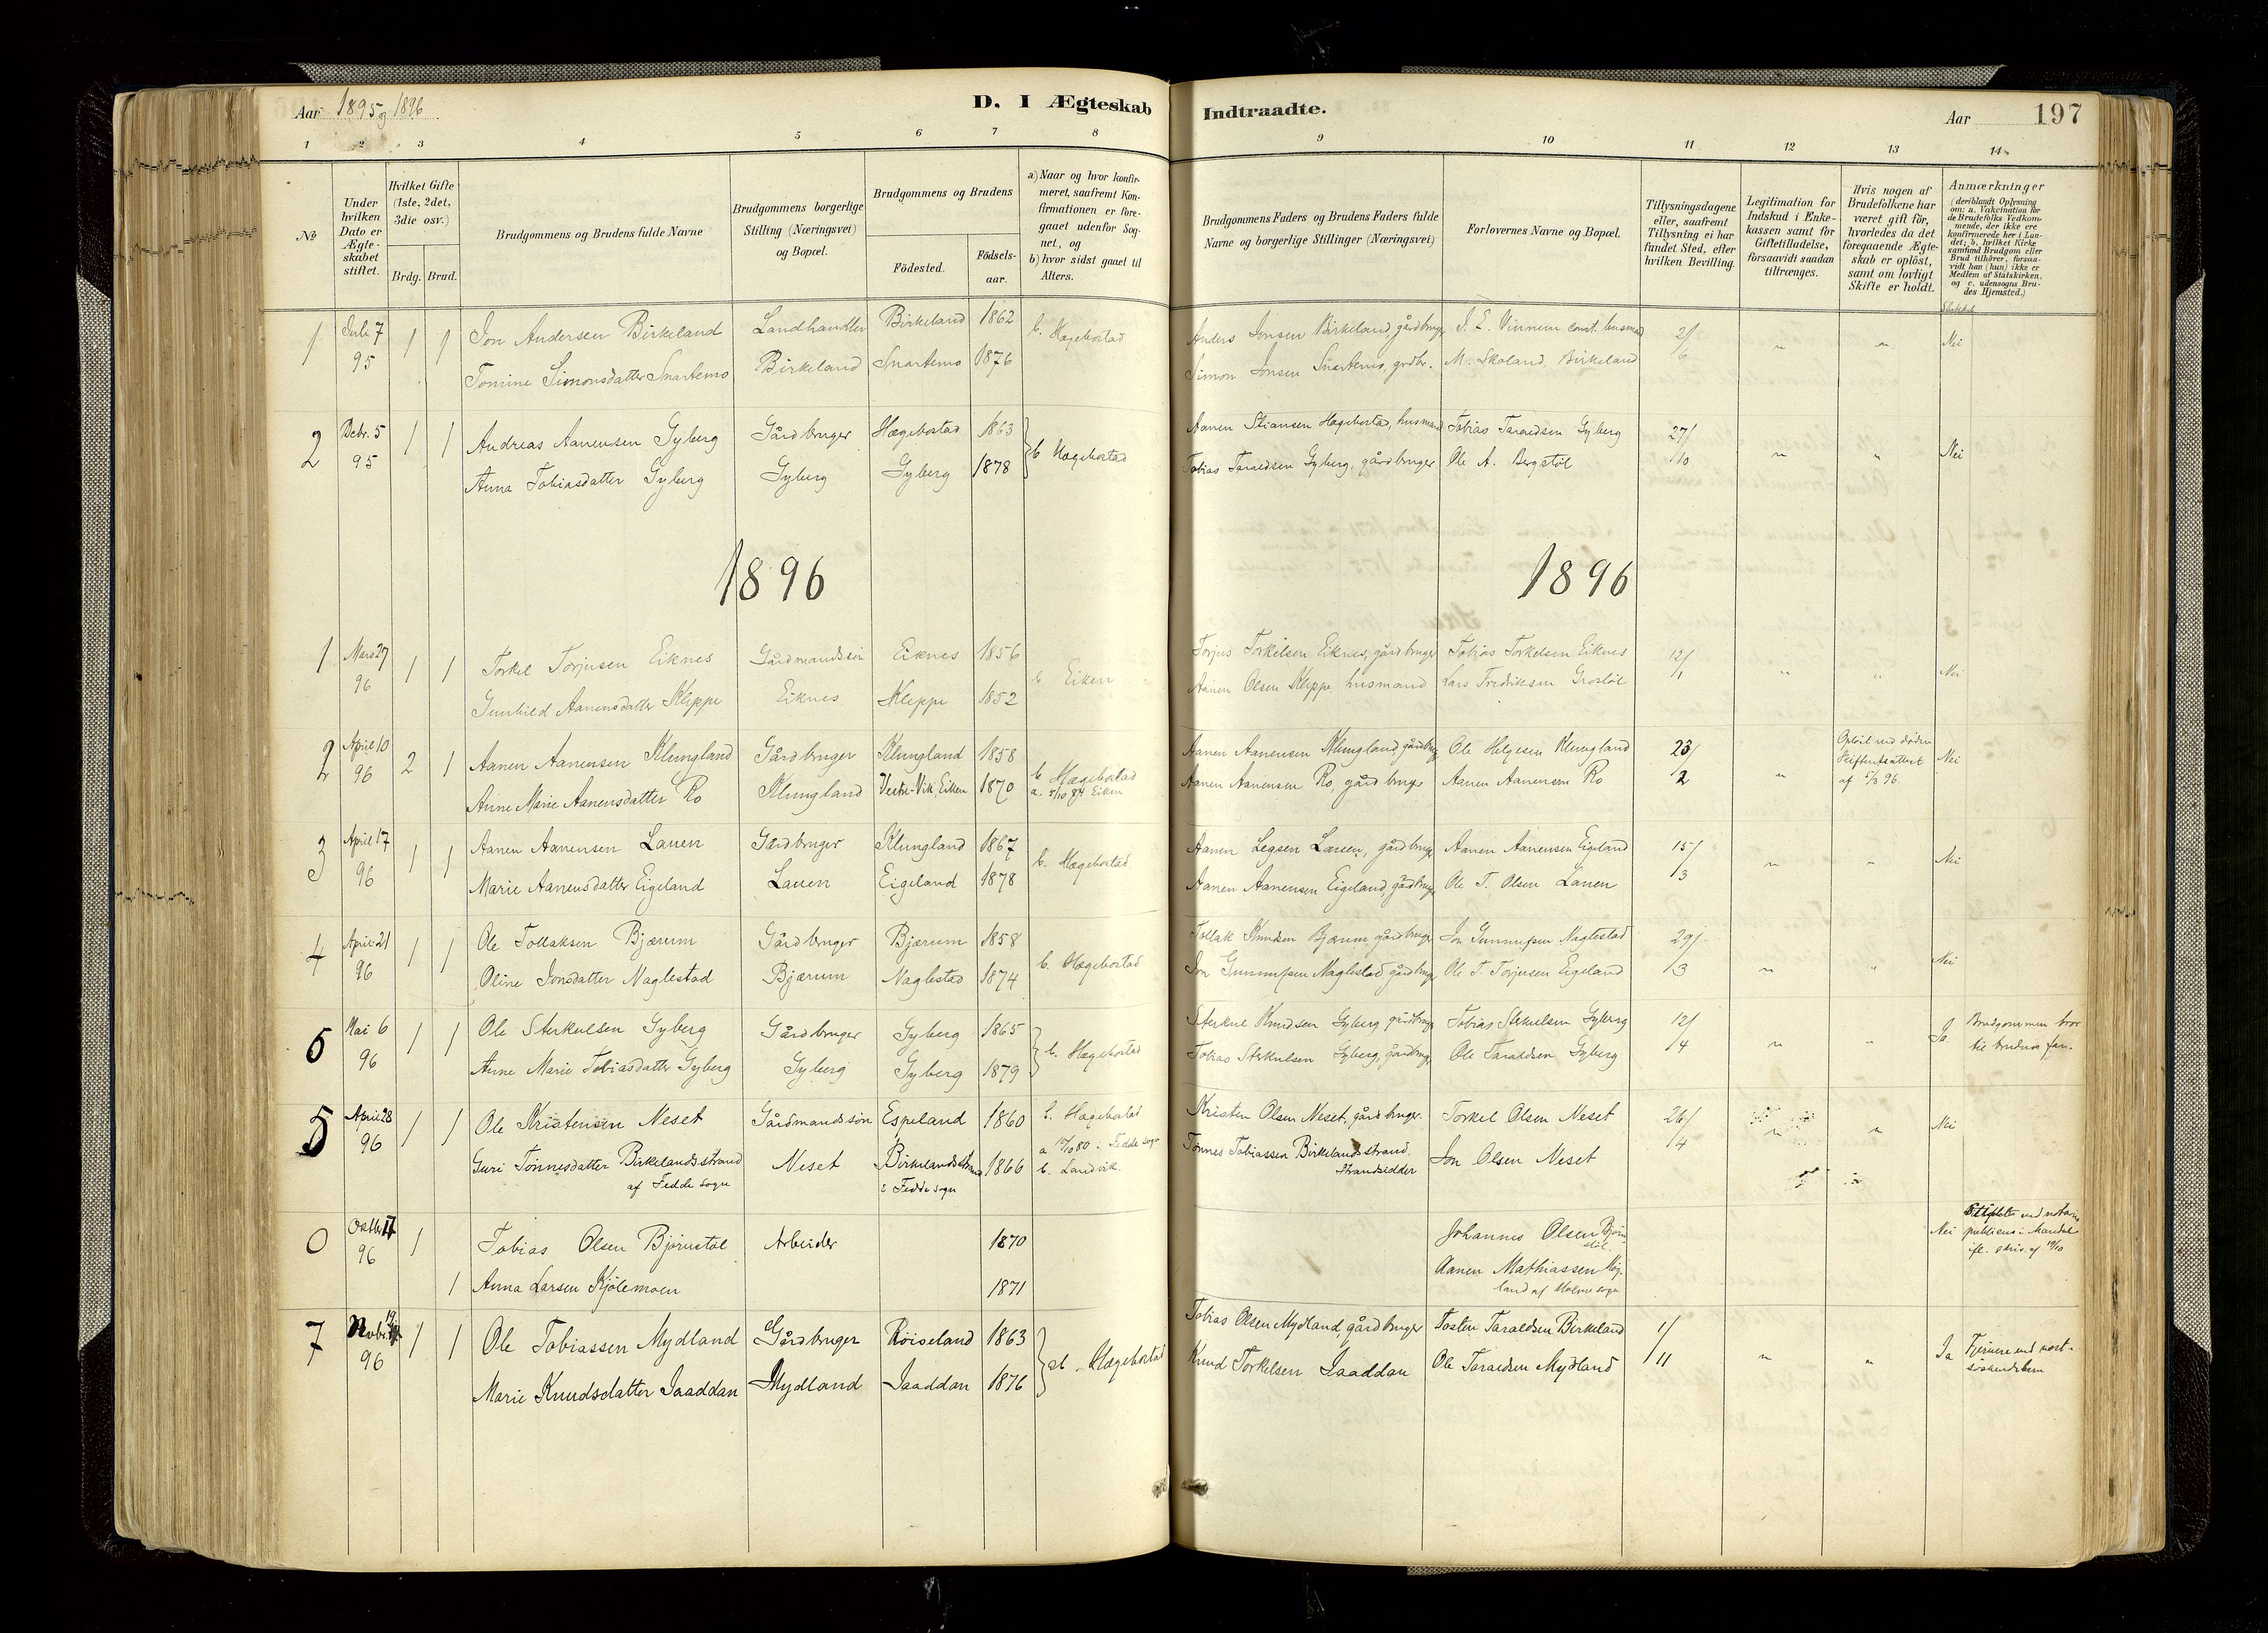 Aar 1895 og 1896
D. I Ægteskab Indtraadte.
Aar
197
1 2 3 4 5 6 7 8 9 10 11 12 13 14
No
Under hvilken Dato er Ægteskabet stiftet.
Hvilket Gifte (1ste, 2det, 3die osv.)
Brdg. Brud.
Brudgommens og Brudens fulde Navne
Brudgommens borgerlige Stilling (Næringsvei) og Bopæl.
Brudgommens og Brudens
Födested.
Födselsaar.
a) Naar og hvor konfirmeret, saafremt Konfirmationen er foregaaet udenfor Sognet, og
b) hvor sidst gaaet til Alters.
Brudgommens Faders og Brudens Faders fulde Navne og borgerlige Stillinger (Næringsvei)
Forlovernes Navne og Bopæl.
Tillysningsdagene eller, saafremt Tillysning ei har fundet Sted, efter hvilken Bevilling.
Legitimation for Indskud i Enkekassen samt for Giftetilladelse, forsaavidt saadan tiltrænges.
Hvis nogen af Brudefolkene har været gift för, hvorledes da det foregaaende Ægteskab er oplöst, samt om lovligt Skifte er holdt.
Anmærkninger
(deriblandt Oplysning om: a. Vakcination for de Brudefolks Vedkommende, der ikke ere konfirmerede her i Landet; b. hvilket Kirkesamfund Brudgom eller Brud tilhörer, forsaavidt han (hun) ikke er Medlem af Statskirken, og c. udensogns Brudes Hjemsted.)
1 Juli 7 1 1 Jon Andersen Birkeland Landhandler Birkeland 1862 b. Hægebostad Anders Jonsen Birkeland, gårdbruger 2/ " " Nei
95 Tomine Simonsdatter Snartemo Birkeland Snartemo 1876 Simon Jonsen Snartemo, grdbr. M. Skoland, Birkeland 6
2 Decbr. 5 1 1 Andreas Aanensen Gyberg Gårdbruger Hægebostad 1863 b Hægebostad Aanen Stiansen Hægebostad, husmand Tobias Taraldsen Gyberg 27/ " " Nei
95 Anna Tobiasdatter Gyberg Gyberg Gyberg 1878 Tobias Taraldsen Gyberg, gårdbruger Ole A. Bergstöl /10
1896 1896
1 Mars 27 1 1 Torkel Torjusen Eiknes Gårdmandssön Eiknes 1856 b Eiken Torjus Torkelsen Eiknes, gårdbruger Tobias Torkelsen Eiknes 12/ " " Nei
96 Gunhild Aanensdatter Kleppe Eiknes Kleppe 1852 Aanen Olsen Kleppe, husmand Lars Fredriksen /1
2 April 10 2 1 Aanen Aanensen Klungland Gårdbruger Klungland 1858 b Hægebostad Aanen Aanensen Klungland, gårdbrug Ole Helgesen Klungland 23/ " Oplöst ved döden Nei
96 Anne Marie Aanensdatter Ro Klungland Vestre-Vik, Eiken 1870 a. 5/10 84 Eiken Aanen Aanensen Ro, gårdbruger Aanen Aanensen Ro /2 Skifteattest af 5/3 96.
3 April 17 1 1 Aanen Aanensen Lauen Gårdbruger Klungland 1867 b. Hægebostad Aanen Legsen Lauen, gårdbruger Aanen Aanensen Eigeland 15/ " " Nei
96 Marie Aanensdatter Eigeland Lauen Eigeland 1878 Aanen Aanensen Eigeland, gårdbruger Ole T. Olsen Lauen /3
4 April 21 1 1 Ole Tollaksen Bjærum Gårdbruger Bjærum 1858 b. Hægebostad Tollak Knudsen Bjærum, gårdbruger Jon Gunnufsen Naglestad 29/ " " Nei
96 Oline Jonsdatter Naglestad Bjærum Naglestad 1874 Jon Gunnufsen Naglestad, gårdbruger Ole T. Torjusen Eigeland /3
6 Mai 6 1 1 Ole Sterkulsen Gyberg Gårdbruger Gyberg 1865 b. Hægebostad Sterkul Knudsen Gyberg gårdbrug Tobias Sterkulsen Gyberg 12/ " " Ja Brudgommen bror
96 Anne Marie Tobiasdatter Gyberg Gyberg Gyberg 1879 Tobias Sterkulsen Gyberg, gårdbrug Ole Taraldsen Gyberg /4 til brudens far.
5 April 28 1 1 Ole Kristensen Neset Gårdmandssön Espeland 1860 b. Hægebostad Kristen Olsen Neset, gårdbruger. Torkel Olsen Neset 26/ " " Nei
96 Guri Tönnesdatter Birkelandsstrand Neset Birkelandsstrand 1866 a /10 80 i Fedde sogn Tönnes Tobiassen Birkelandsstrand. Jon Olsen Neset /4
af Fedde sogn i Fedde sogn b. Landvik. strandsidder
0 Octbr 17 1 Tobias Olsen Björnstöl Arbeider 1870 Johannes Olsen Björnstöl. Nei Stiftet ved notarius publicus i Mandal
96 1 Anna Larsen Kjölemoen 1871 Aanen Mathiassen Högland af Holme sogn ifl. skriv. af 19/10
7 Novbr. 19 1 1 Ole Tobiassen Mydland Gårdbruger Röiseland 1863 Hægebostad Tobias Olsen Mydland, gårdbruger Tosten Taraldsen Birkeland 1/ " " Ja Fjernere end næst-
96 Marie Knudsdatter Jaaddan Mydland Jaaddan 1876 Knud Torkelsen Jaaddan Ole Taraldsen Mydland /11 söskendebarn